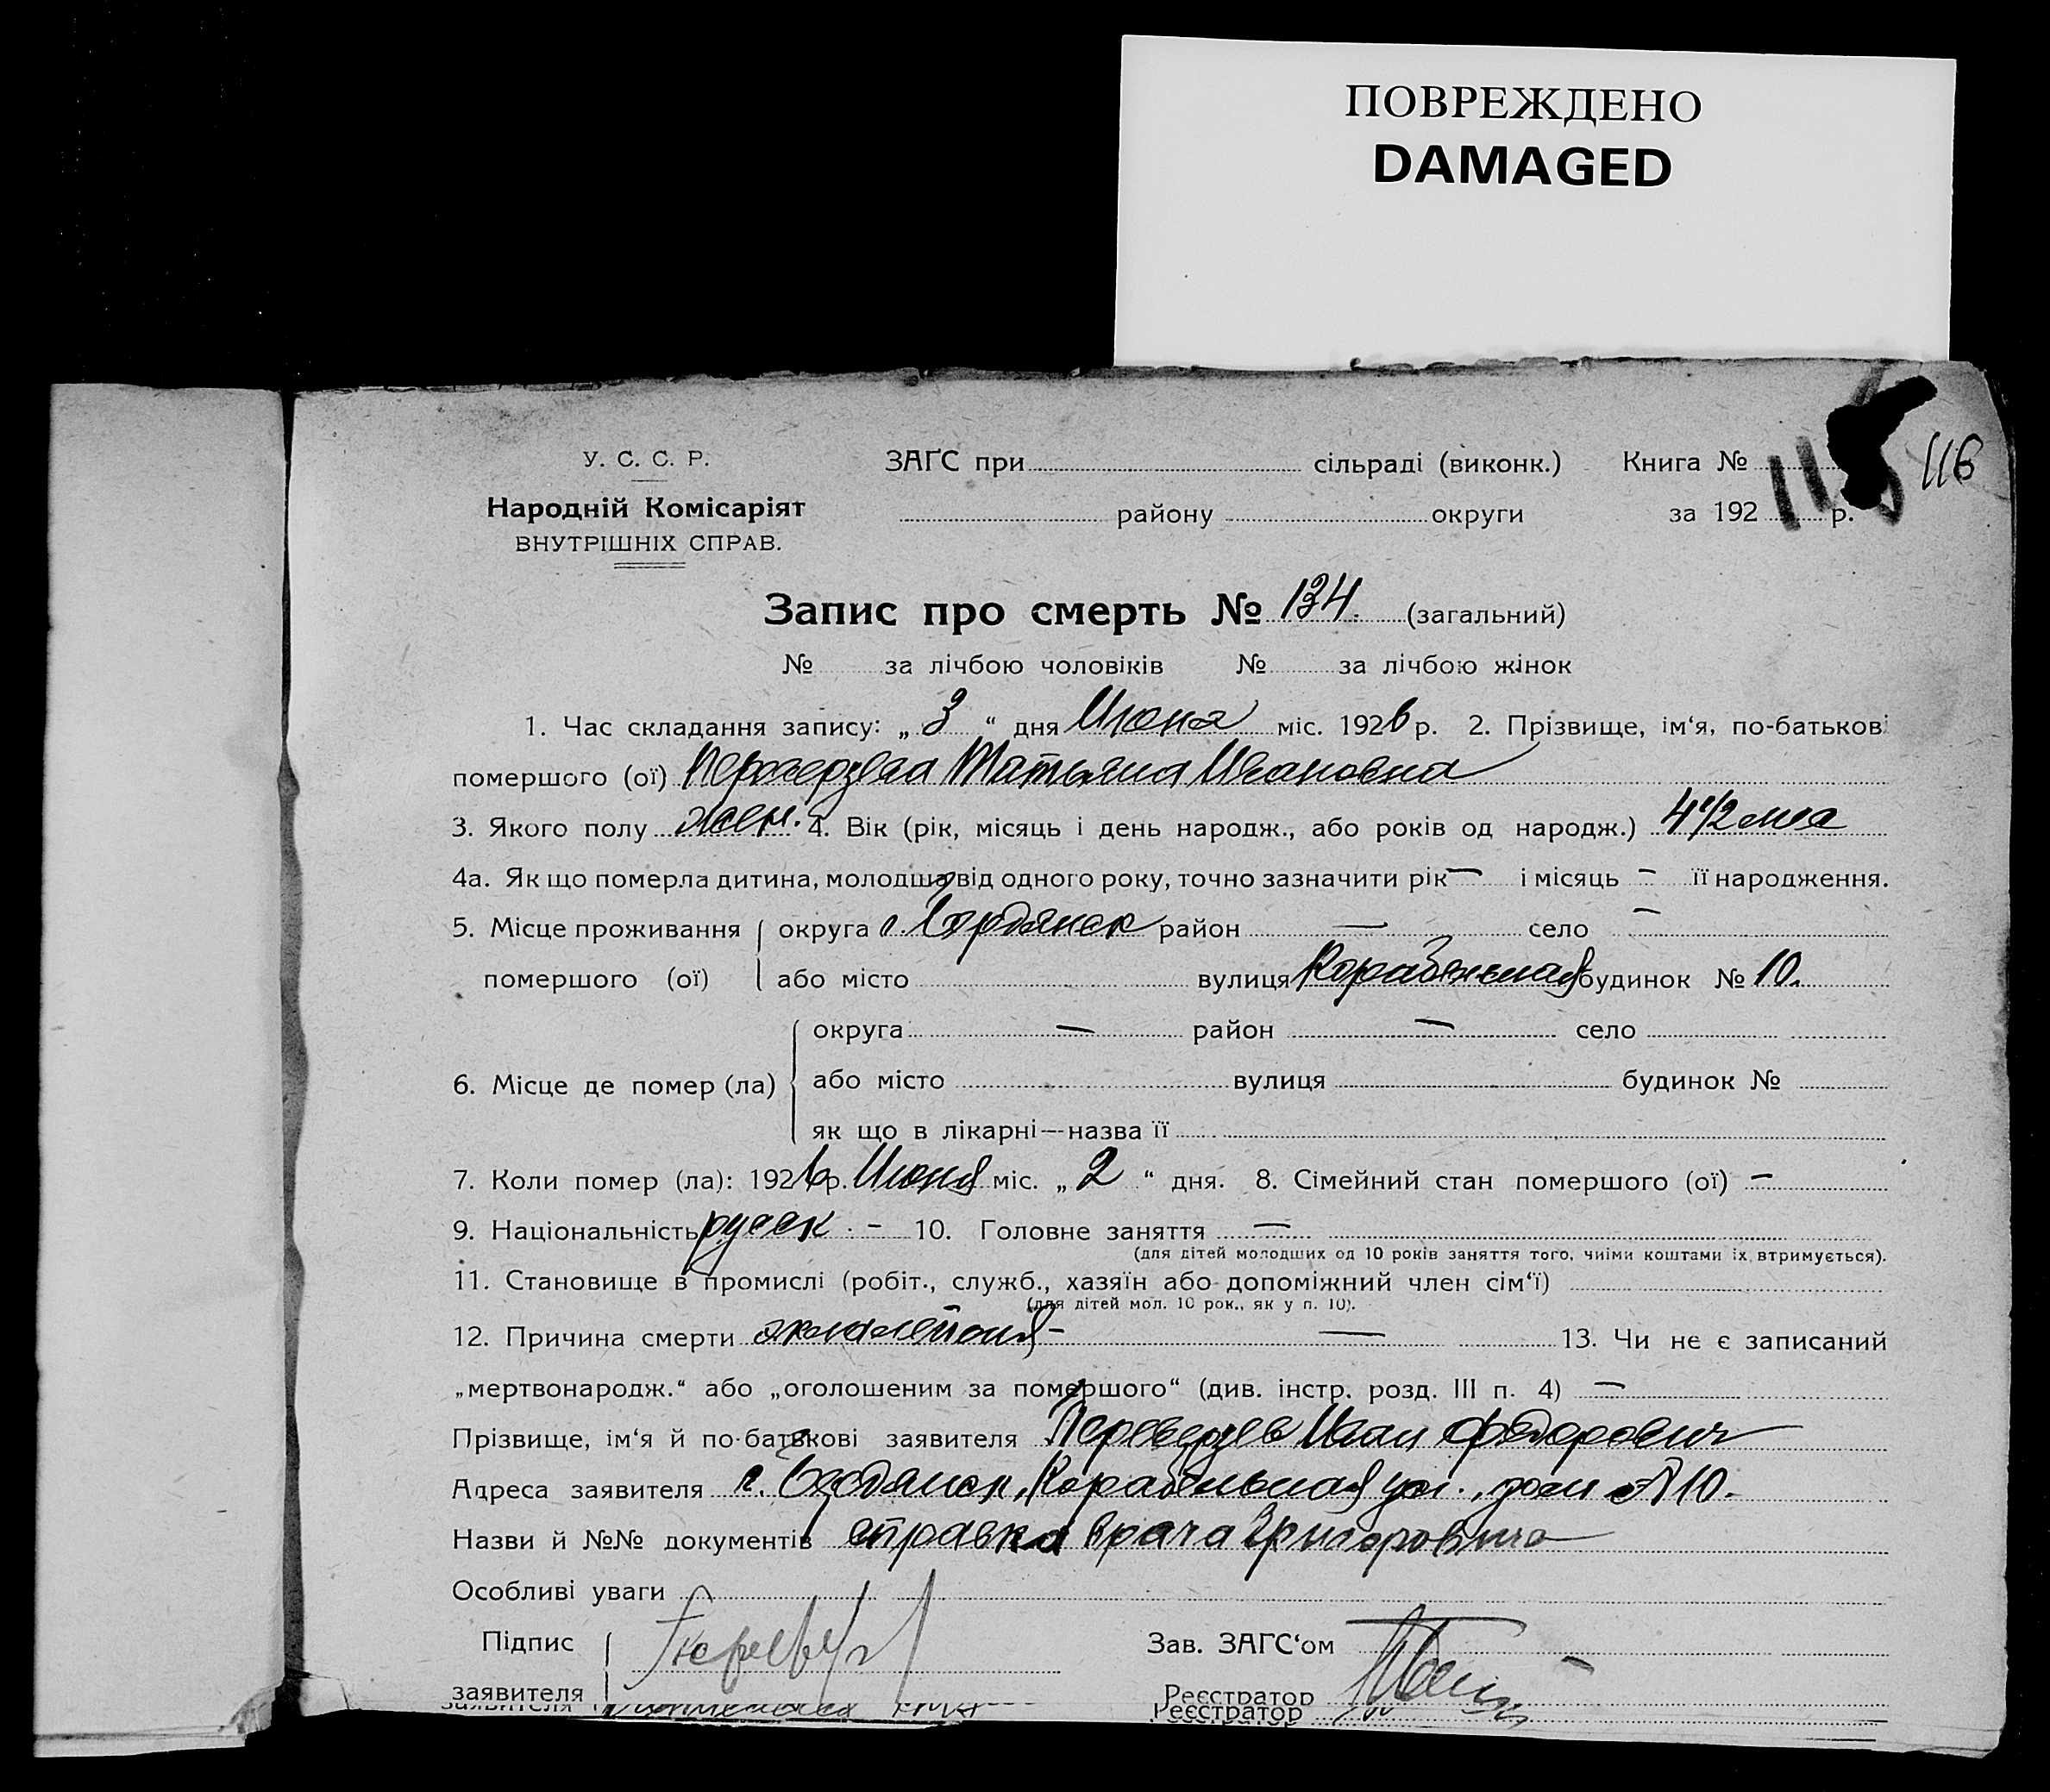 ПОВРЕЖДЕНО
DAMAGED
У. С. С. Р. ЗАГС при сільраді (виконк.) Книга № 116
Народній Комісаріят району округи за 192 р.
ВНУТРІШНІХ СПРАВ.
Запис про смерть № 134. (загальний)
№ за лічбою чоловіків № за лічбою жінок
1. Час складання запису: „ 3 “ дня Июня міс. 1926 р. 2. Прізвище, ім‘я, по-батькові
помершого (ої) Татьяна Ивановна
3. Якого полу жен. 4. Вік (рік, місяць і день народж., або років од народж.) 4 1/2 мес
4а. Як що померла дитина, молодша від одного року, точно зазначити рік — і місяць – її народження.
5. Місце проживання округа г. Бердянск район — село —
помершого (ої) або місто вулиця Корабельная будинок № 10.
округа — район — село
6. Місце де помер (ла) або місто вулиця будинок №
як що в лікарні—назва її
7. Коли помер (ла): 1926 р. Июня міс. „ 2 “ дня. 8. Сімейний стан помершого (ої) –
9. Національність русск. – 10. Головне заняття —
(для дітей молодших од 10 років заняття того, чиїми коштами їх втримується).
11. Становище в промислі (робіт., служб., хазяїн або допоміжний член сім‘ї)
(для дітей мол. 10 рок., як у п. 10).
12. Причина смерти эклампсия – — 13. Чи не є записаний
„мертвонародж.“ або „оголошеним за помершого“ (див. інстр. розд. III п. 4) —
Прізвище, ім‘я й по-батькові заявителя Переверзев Иван Федорович
Адреса заявителя г. Бердянск, Корабельная ул., дом № 10.
Назви й №№ документів справка врача Григоровича
Особливі уваги
Підпис Зав. ЗАГС‘ом
заявителя Реєстратор
заявителя Реєстратор